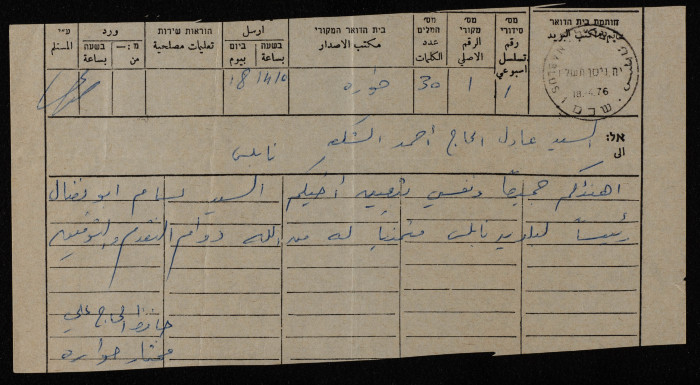 חותמת בית הדואר
خاتم مكتب البريد
מס' סידורי
رقم تسلسل اسبوعي
1
מס' מקורי
الرقم الاصلي
1
מס' המלים
عدد الكلمات
30
בית הדואר המקורי
مكتب الاصدار
حواره
ارسل
בשעה
بساعة
ביום
بيوم
1410
18
הוראות שירות
تعليمات مصلحية
ورد
מ:—
من
בשעה
بساعة
ע״י
المستلم
NABLUS
18.4.76
שכם
אל:
الى
السيد عادل الحاج أحمد الشكعه نابلس
اهنئكم جميعاً ونفسي بتعيين أخيكم السيد بسام ابو نضال
رئيساً لبلدية نابلس متمنياً له من الله دوام التقدم والتوفيق
حافظ الحاج علي
مختار حواره